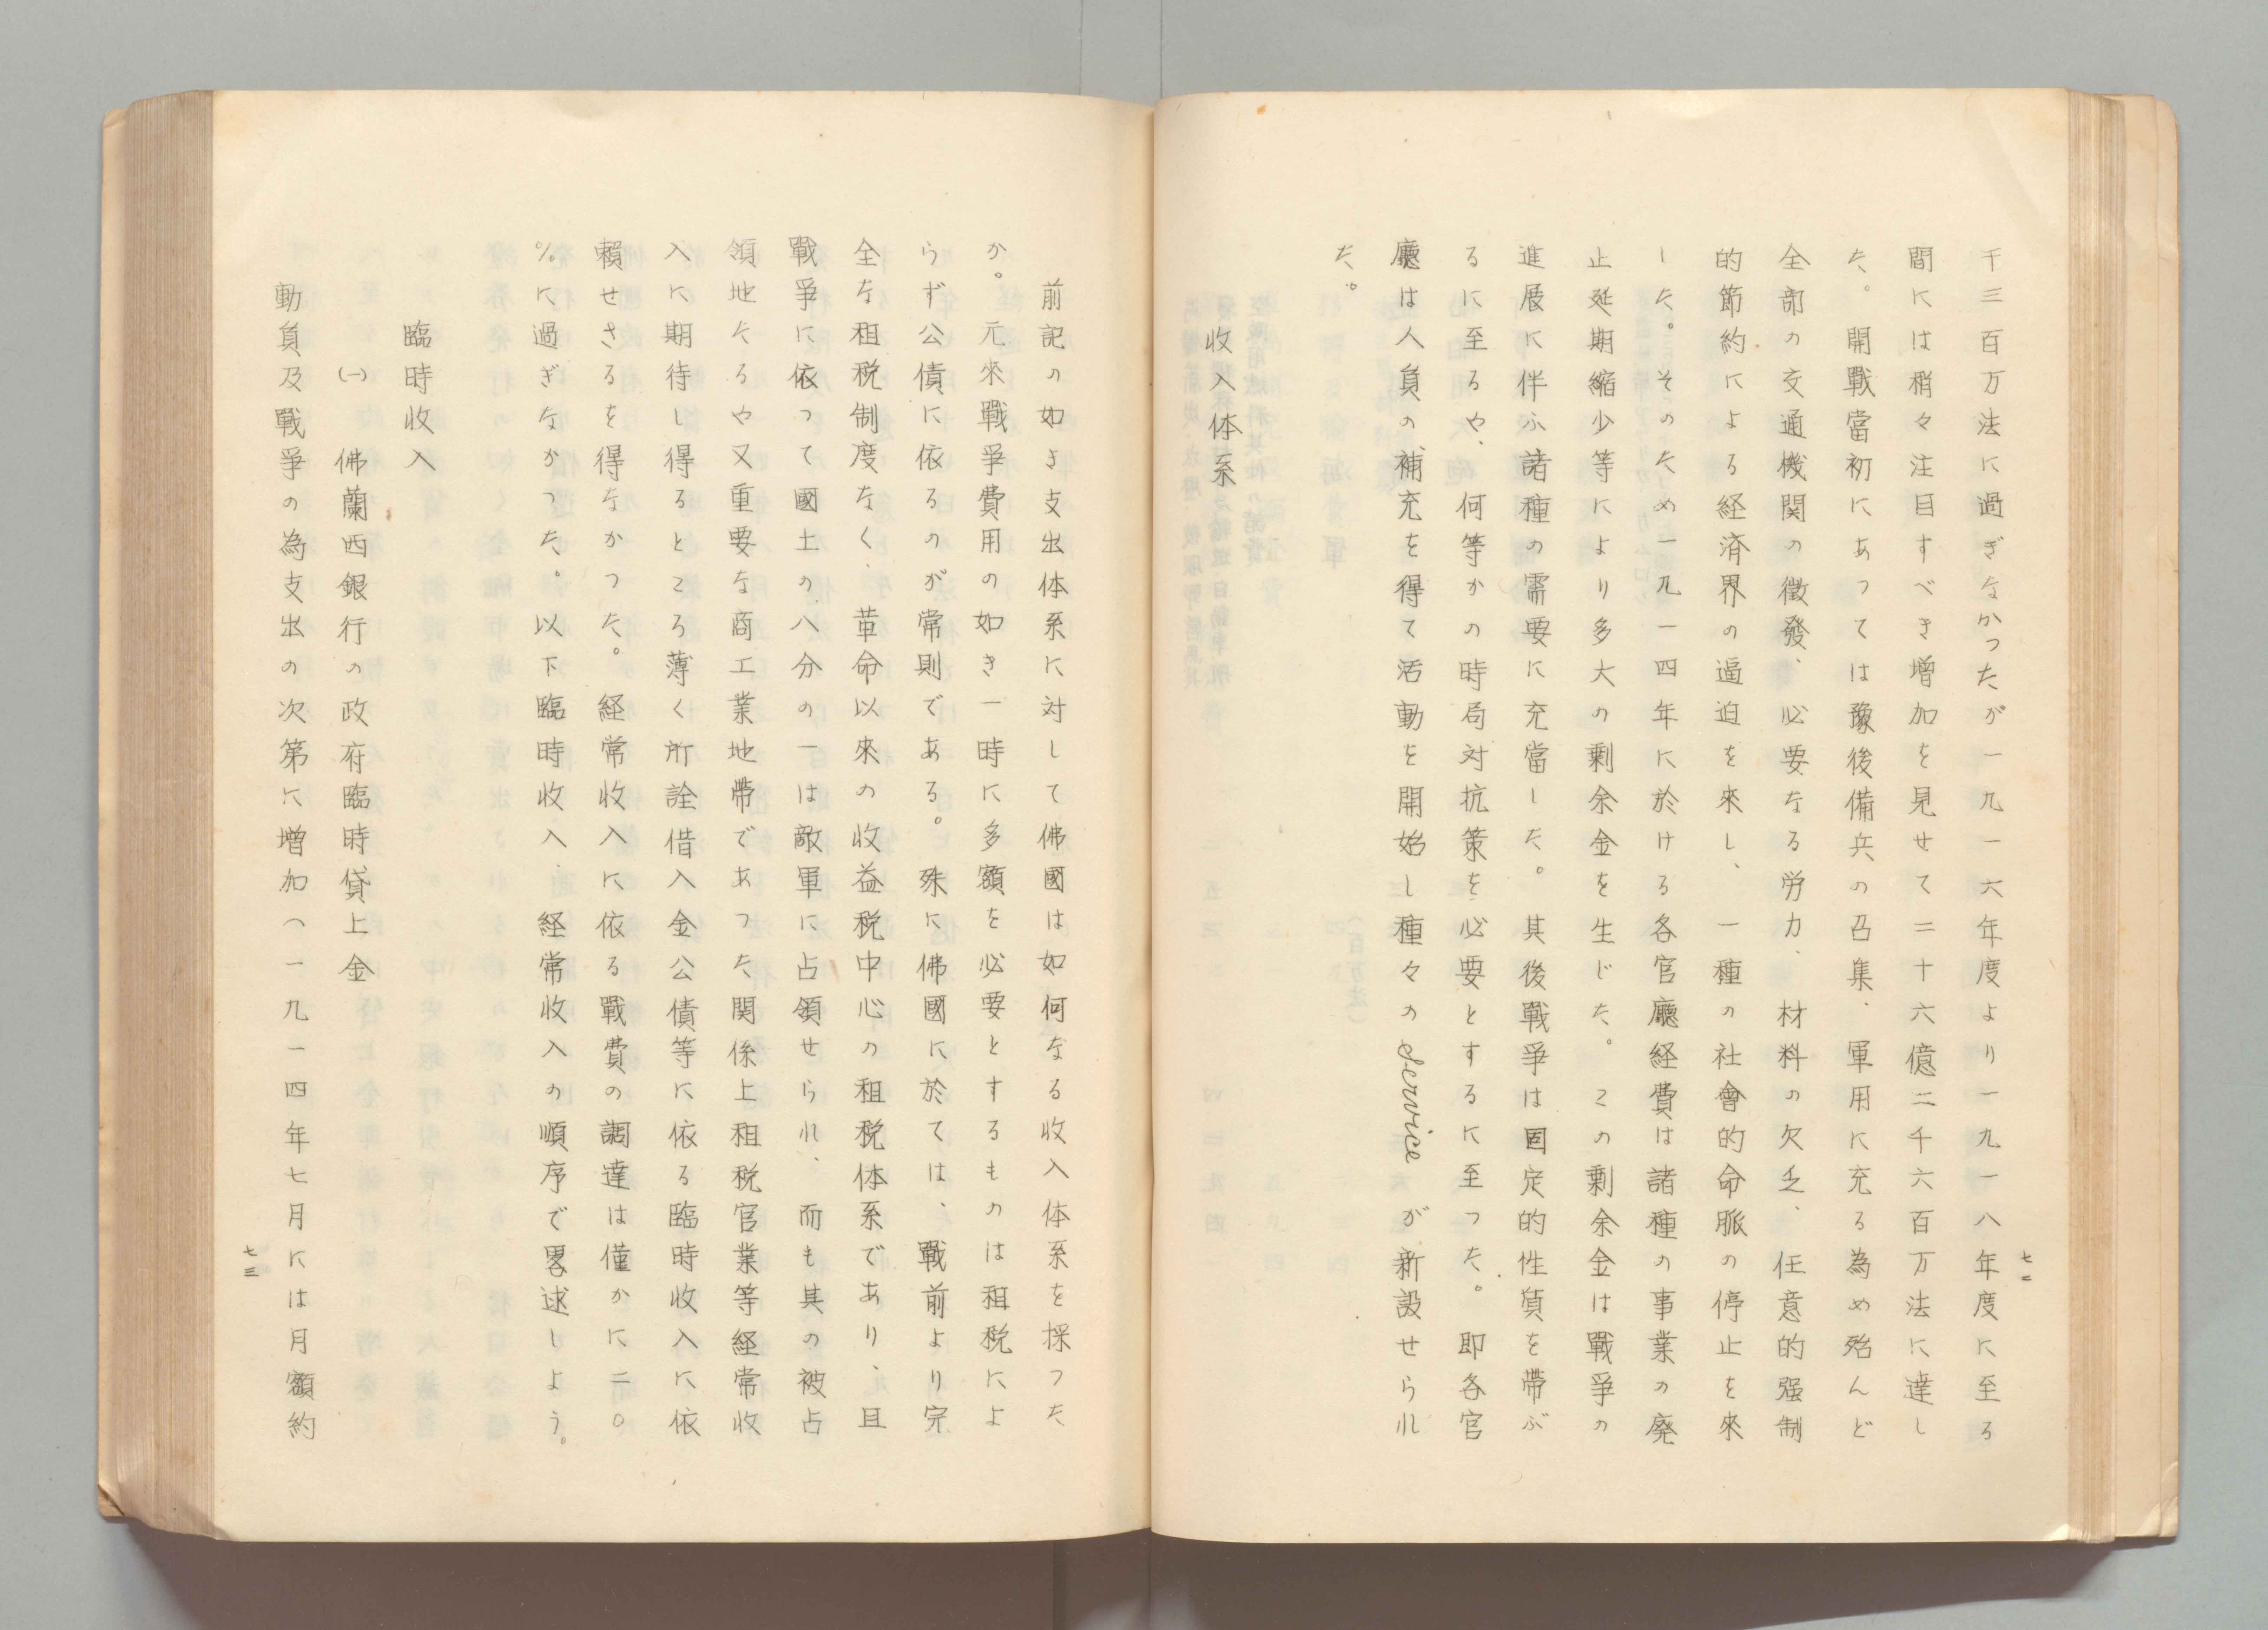 七二
千三百万法に過ぎなかつたが一九一六年度より一九一八年度に至る
間には稍々注目すべき増加を見せて二十六億二千六百万法に達し
た。開戰當初にあつては豫後備兵の召集、軍用に充る為め殆んど
全部の交通機関の徴發、必要なる労力、材料の欠乏、任意的强制
的節約による経済界の逼迫を來し、一種の社會的命脈の停止を來
した。そのため一九一四年に於ける各官廳経費は諸種の事業の廃
止延期縮少等により多大の剰余金を生じた。この剰余金は戰爭の
進展に伴ふ諸種の需要に充當した。其後戰爭は固定的性質を帶ぶ
るに至るや、何等かの時局対抗策を必要とするに至つた。即各官
廳は人員の補充を得て活動を開始し種々のserviceが新設せられ
た。
收入体系
前記の如き支出体系に対して佛國は如何なる收入体系を採つた
か。元來戰爭費用の如き一時に多額を必要とするものは租税によ
らず公債に依るのが常則である。殊に佛國に於ては、戰前より完
全な租税制度なく、革命以來の收益税中心の租税体系であり、且
戰爭に依つて國土の八分の一は敵軍に占領せられ、而も其の被占
領地たるや又重要な商工業地帶であつた関係上租税官業等経常收
入に期待し得るところ薄く所詮借入金公債等に依る臨時收入に依
賴せざるを得なかつた。経常收入に依る戰費の調達は僅かに二〇
%に過ぎなかつた。以下臨時收入、経常收入の順序で畧述しよう。
臨時收入
(一) 佛蘭西銀行の政府臨時貸上金
動員及戰爭の為支出の次第に増加へ一九一四年七月には月額約
七三